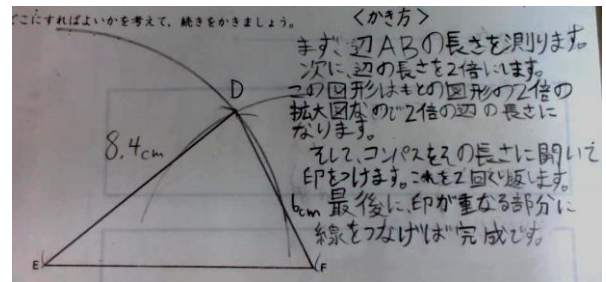 どこにすればよいかを考えて、続きをかきましょう。
〈かき方〉
まず、辺ABの長さを測ります。
次に、辺の長さを2倍にします。
この図形はもとの図形の2倍の
拡大図なので2倍の辺の長さに
なります。
そして、コンパスをその長さに開いて
印をつけます。これを2回くり返します。
最後に、印が重なる部分に
線をつなげば完成です。
D
8.4cm
6cm
E
F